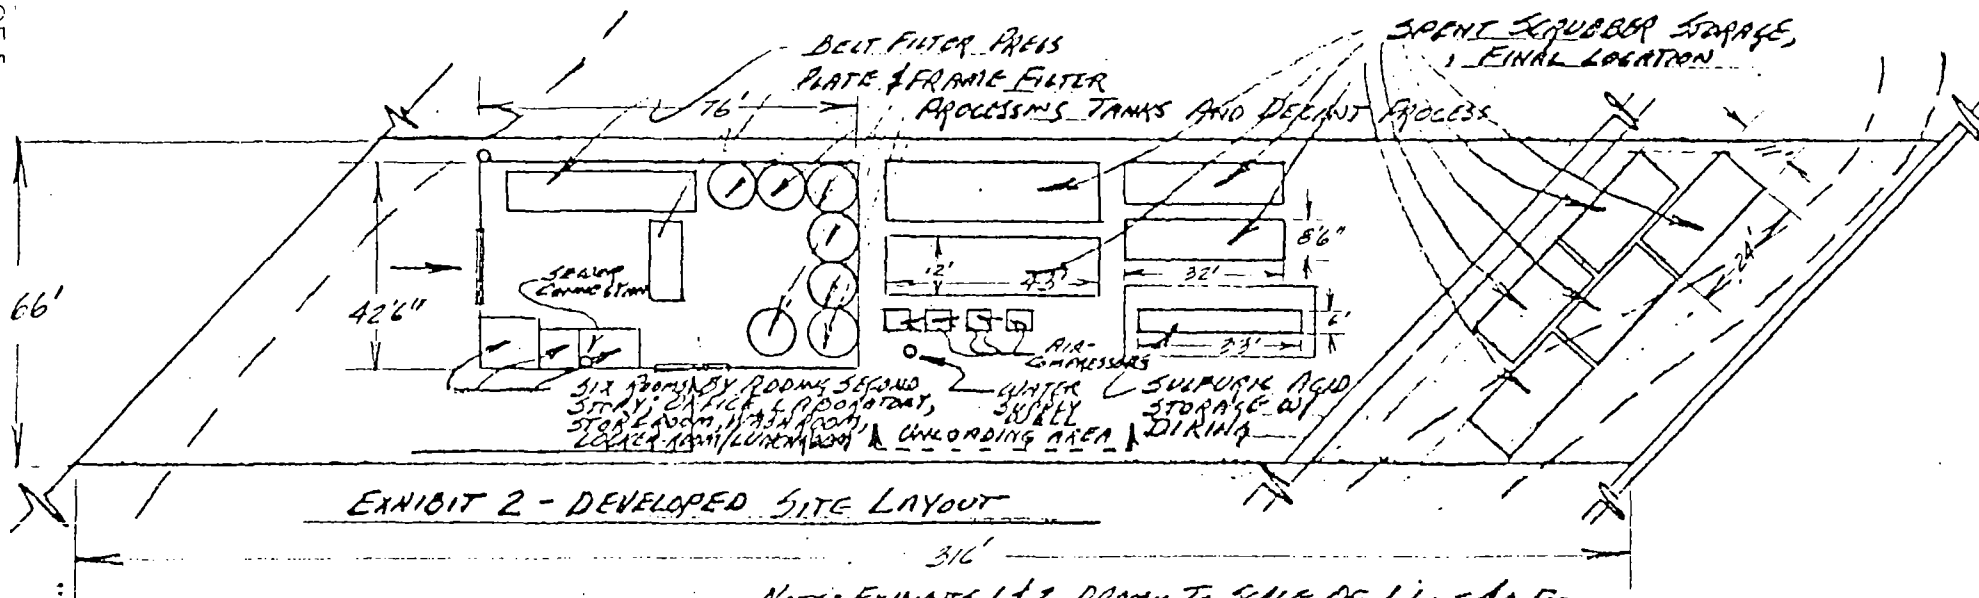 BELT FILTER PRESS
PLATE & FRAME FILTER
PROCESSING TANKS AND DECANT PROCESS
SPENT SCRUBBER STORAGE,
FINAL LOCATION
76'
66'
42'6"
SEWER
CONNECTION
12'
43'
32'
8'6"
6'
33'
24'
AIR-
COMPRESSORS
SIX ROOMS BY ADDING SECOND
STORY; OFFICE, LABORATORY,
STOREROOM, WASHROOM,
LOCKER ROOM/LUNCHROOM
WATER
SUPPLY
UNLOADING AREA
SULFURIC ACID
STORAGE W/
DIKING
EXHIBIT 2 - DEVELOPED SITE LAYOUT
316'
NOTE: EXHIBITS 1 & 2 DRAWN TO SCALE OF